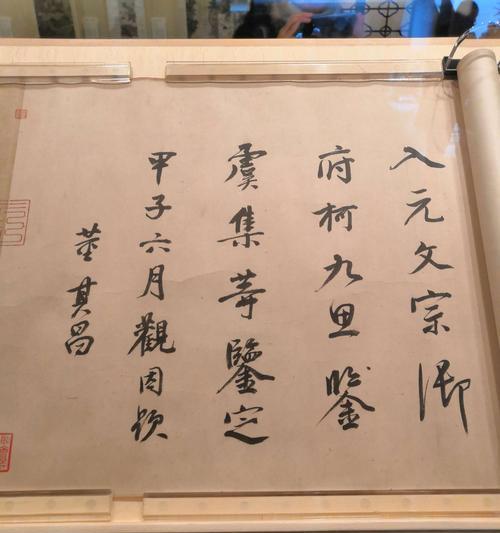 入元文宗御
府柯九思鑒
虞集等鑒定
甲子六月觀因題
董其昌